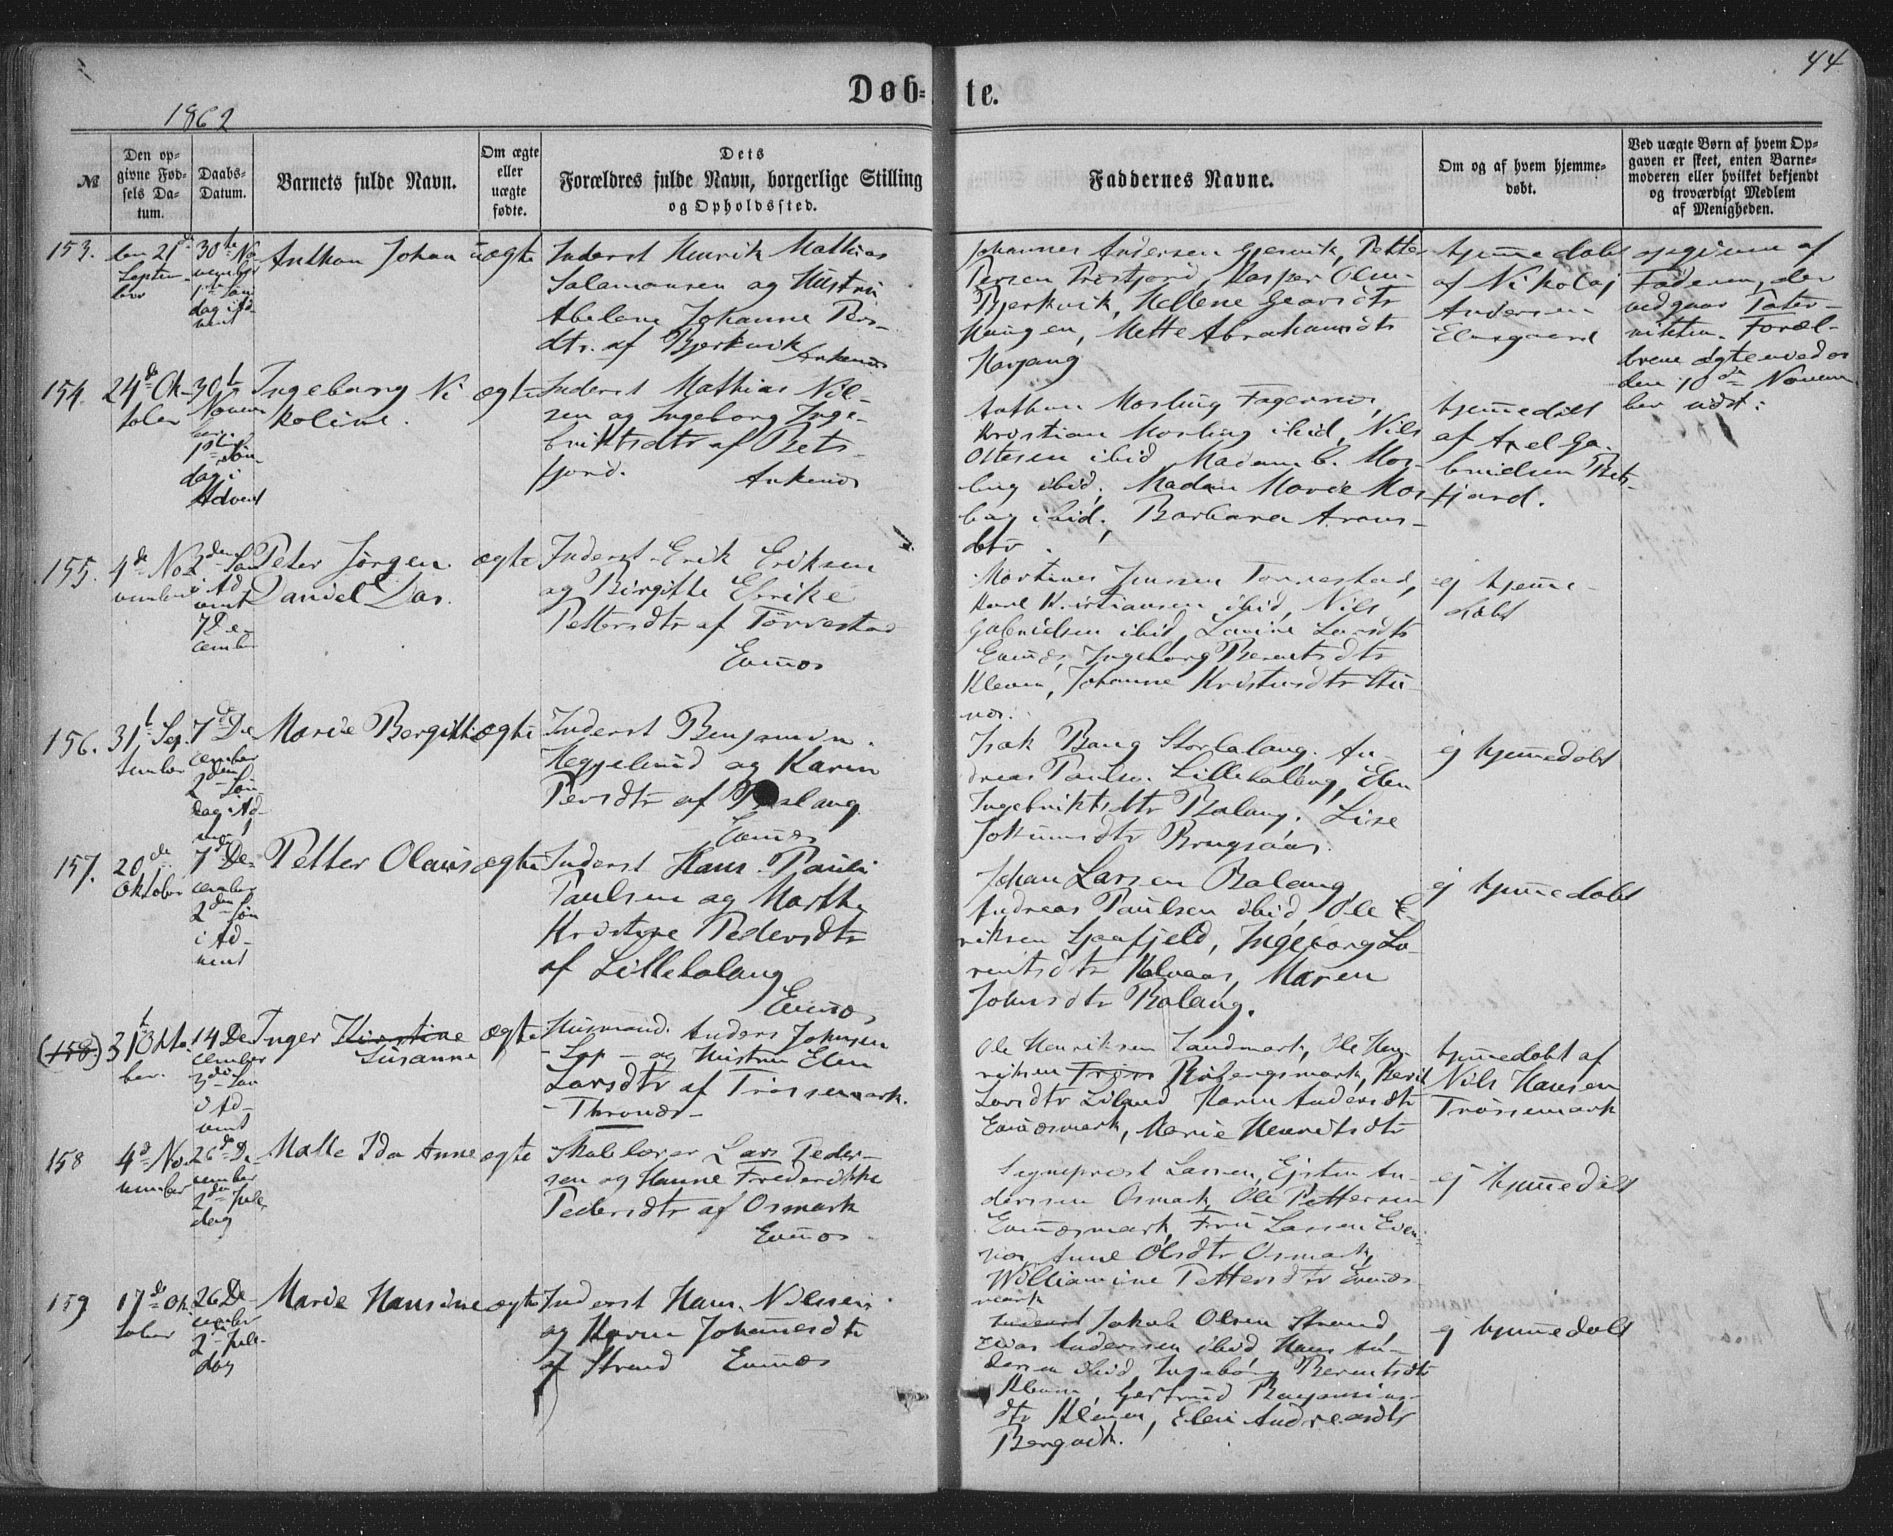 44
Døb-te.
1862
№
Den op-
givne Fød-
sels Da-
tum.
Daabs-
Datum.
Barnets fulde Navn.
Om ægte
eller
uægte
fødte.
Dets
Forældres fulde Navn, borgerlige Stilling
og Opholdssted.
Faddernes Navne.
Om og af hvem hjemme-
døbt.
Ved uægte Børn af hvem Op-
gaven er skeet, enten Barne-
moderen eller hvilket bekjendt
og troværdigt Medlem
af Menigheden.
153.
den 21de
Septem-
ber
30te No
vember
1ste Søn
dag i Ad-
vent
Anthon Johan
uægte
Inderst Henrik Mathias
Salamonsen og Hustru
Abelene Johanne Pers-
dtr. af Bjerkvik
Ankenes
Johannes Andersen Gjersvik, Petter
Persen Trøstfjord, Kaspar Olsen
Bjerkvik, Hellene
Haugen, Mette Abrahamsdtr
Herjang
hjemmedøbt
af Nikolaj
Andersen
Elvegaard
opgiven af
Faderen, der
vedgaar Pater-
niteten. Foræl-
drene ægteviedes
den 10de Novem
ber udst:
154.
24de Ok-
tober
30te
Novem
ber
1ste Søn
dag i
Advent
Ingeborg Ni
koline.
ægte
Inderst Mathias Nil-
sen og Ingeborg Inge-
briktsdtr af Bets-
fjord.
Ankenes
Anthon Mosling Fagernes,
Kristian Mosling ibid, Nils
Ottesen ibid Madam C. Mos-
ling ibid, Madam Marie Mos
ling ibid, Barbara Arons-
dtr.
hjemmedøbt
af Axel Ga-
brielsen Bets-
fjord.
155.
4de No-
vember
2den Søn
i Ad
vent
7 De-
cember
Peter Jørgen
Daniel Das.
ægte
Inderst Erik Eriksen
og Birgitte Erike
Pettersdtr af Tørrestad
Evenes
Martines Jensen Tørrestad,
Karl Kristiansen ibid, Nils
Gabrielsen ibid, Lovine Larsdtr
Evenes, Ingeborg Berentsdtr
Kleven, Johanne Kristensdtr Eve-
nes.
ej hjemme-
døbt
156.
31t Sep
tember
7de De
cember
2den Søn-
dag i Ad-
vent
Marie Bergitte
ægte
Inderst Benjamin
Heggelund og Karen
Persdtr af Balang
Evenes
Isak Bang Storbalang, An-
dreas Paulsen Lillebalang, Elen
Ingebriktsdtr Balang, Lise
Jokumsdtr
ej hjemmedøbt
157.
20de
Oktober
7de De-
cember
2den Søn
i Ad-
vent
Petter Olaus
ægte
Inderst Hans Pauli
Paulsen og Marthe
Kristine Pedersdtr
af Lillebalang
Evenes
Johan Larsen Balang,
Andreas Paulsen ibid, Ole E-
riksen Sjaafjeld, Ingeborg La-
rentsdtr Kalvaas, Maren
Johnsdtr Balang.
ej hjemmedøbt
(158)
31t Okto-
ber.
14 De
cember
3die Søn
i Ad-
vent
Inger Kirstine
Susanne
ægte
Husmand. Anders Johnsen
- Lap - og Hustru Elen
Larsdtr af Trøssemark.
- Thronæs -
Ole Henriksen Sandmark, Ole Hen-
riksen Røbergsmark, Berit
Larsdtr Liland Karen Andersdtr
Evenesmark, Marie Henriksdtr
hjemmedøbt af
Nils Hansen
Trøssemark
158
4de No-
vember
26de De-
cember
2den Jule
dag
Malle Ida Anne
ægte
Skolelærer Lars Peder-
sen og Hanne Frederikke
Pedersdtr af Osmark
Evenes
Sogneprest Lassen, Ejsten An-
dersen Osmark, Ole Pettersen
Evenesmark, Fru Lassen Eve-
nes, Anne Olsdtr Osmark,
Williamine Pettersdtr Evenes-
mark
ej hjemmedøbt
159
17de Ok-
tober
26 De-
cember
2den Jule-
dag
Marie Hansine
ægte
Inderst Hans Nilssen
og Karen Johannesdtr
af Strand Evenes
Inderst Jakob Olsen Strand,
Andersen ibid Hans An-
dersen ibid, Ingeborg Berentsdtr
Kleven, Gertrud Benjamins-
dtr Kleven, Elen Andreasdtr
Bergvik.
ej hjemmedøbt